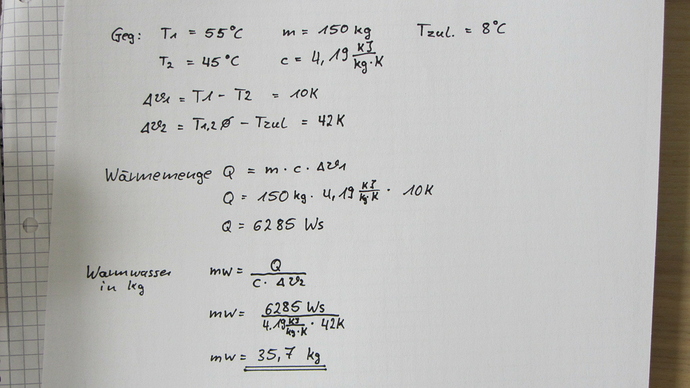 Geg: T1 = 55°C m = 150 kg Tzul. = 8°C
T2 = 45°C c = 4,19 kJ/kg·K
Δϑ1 = T1 - T2 = 10K
Δϑ2 = T1,2 Ø - Tzul = 42K
Wärmemenge Q = m · c · Δϑ1
Q = 150 kg · 4,19 kJ/kg·K · 10K
Q = 6285 Ws
Warmwasser in kg mw = Q / c · Δϑ2
mw = 6285 Ws / 4,19 kJ/kg·K · 42K
mw = 35,7 kg